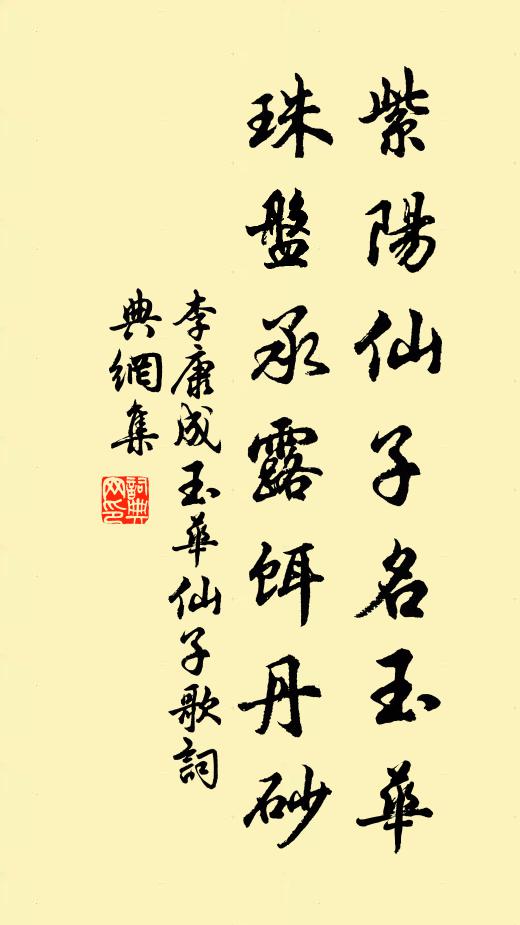 紫陽仙子名玉華
珠盤承露餌丹砂
李康成玉華仙子歌詞
典網集
詞典网印